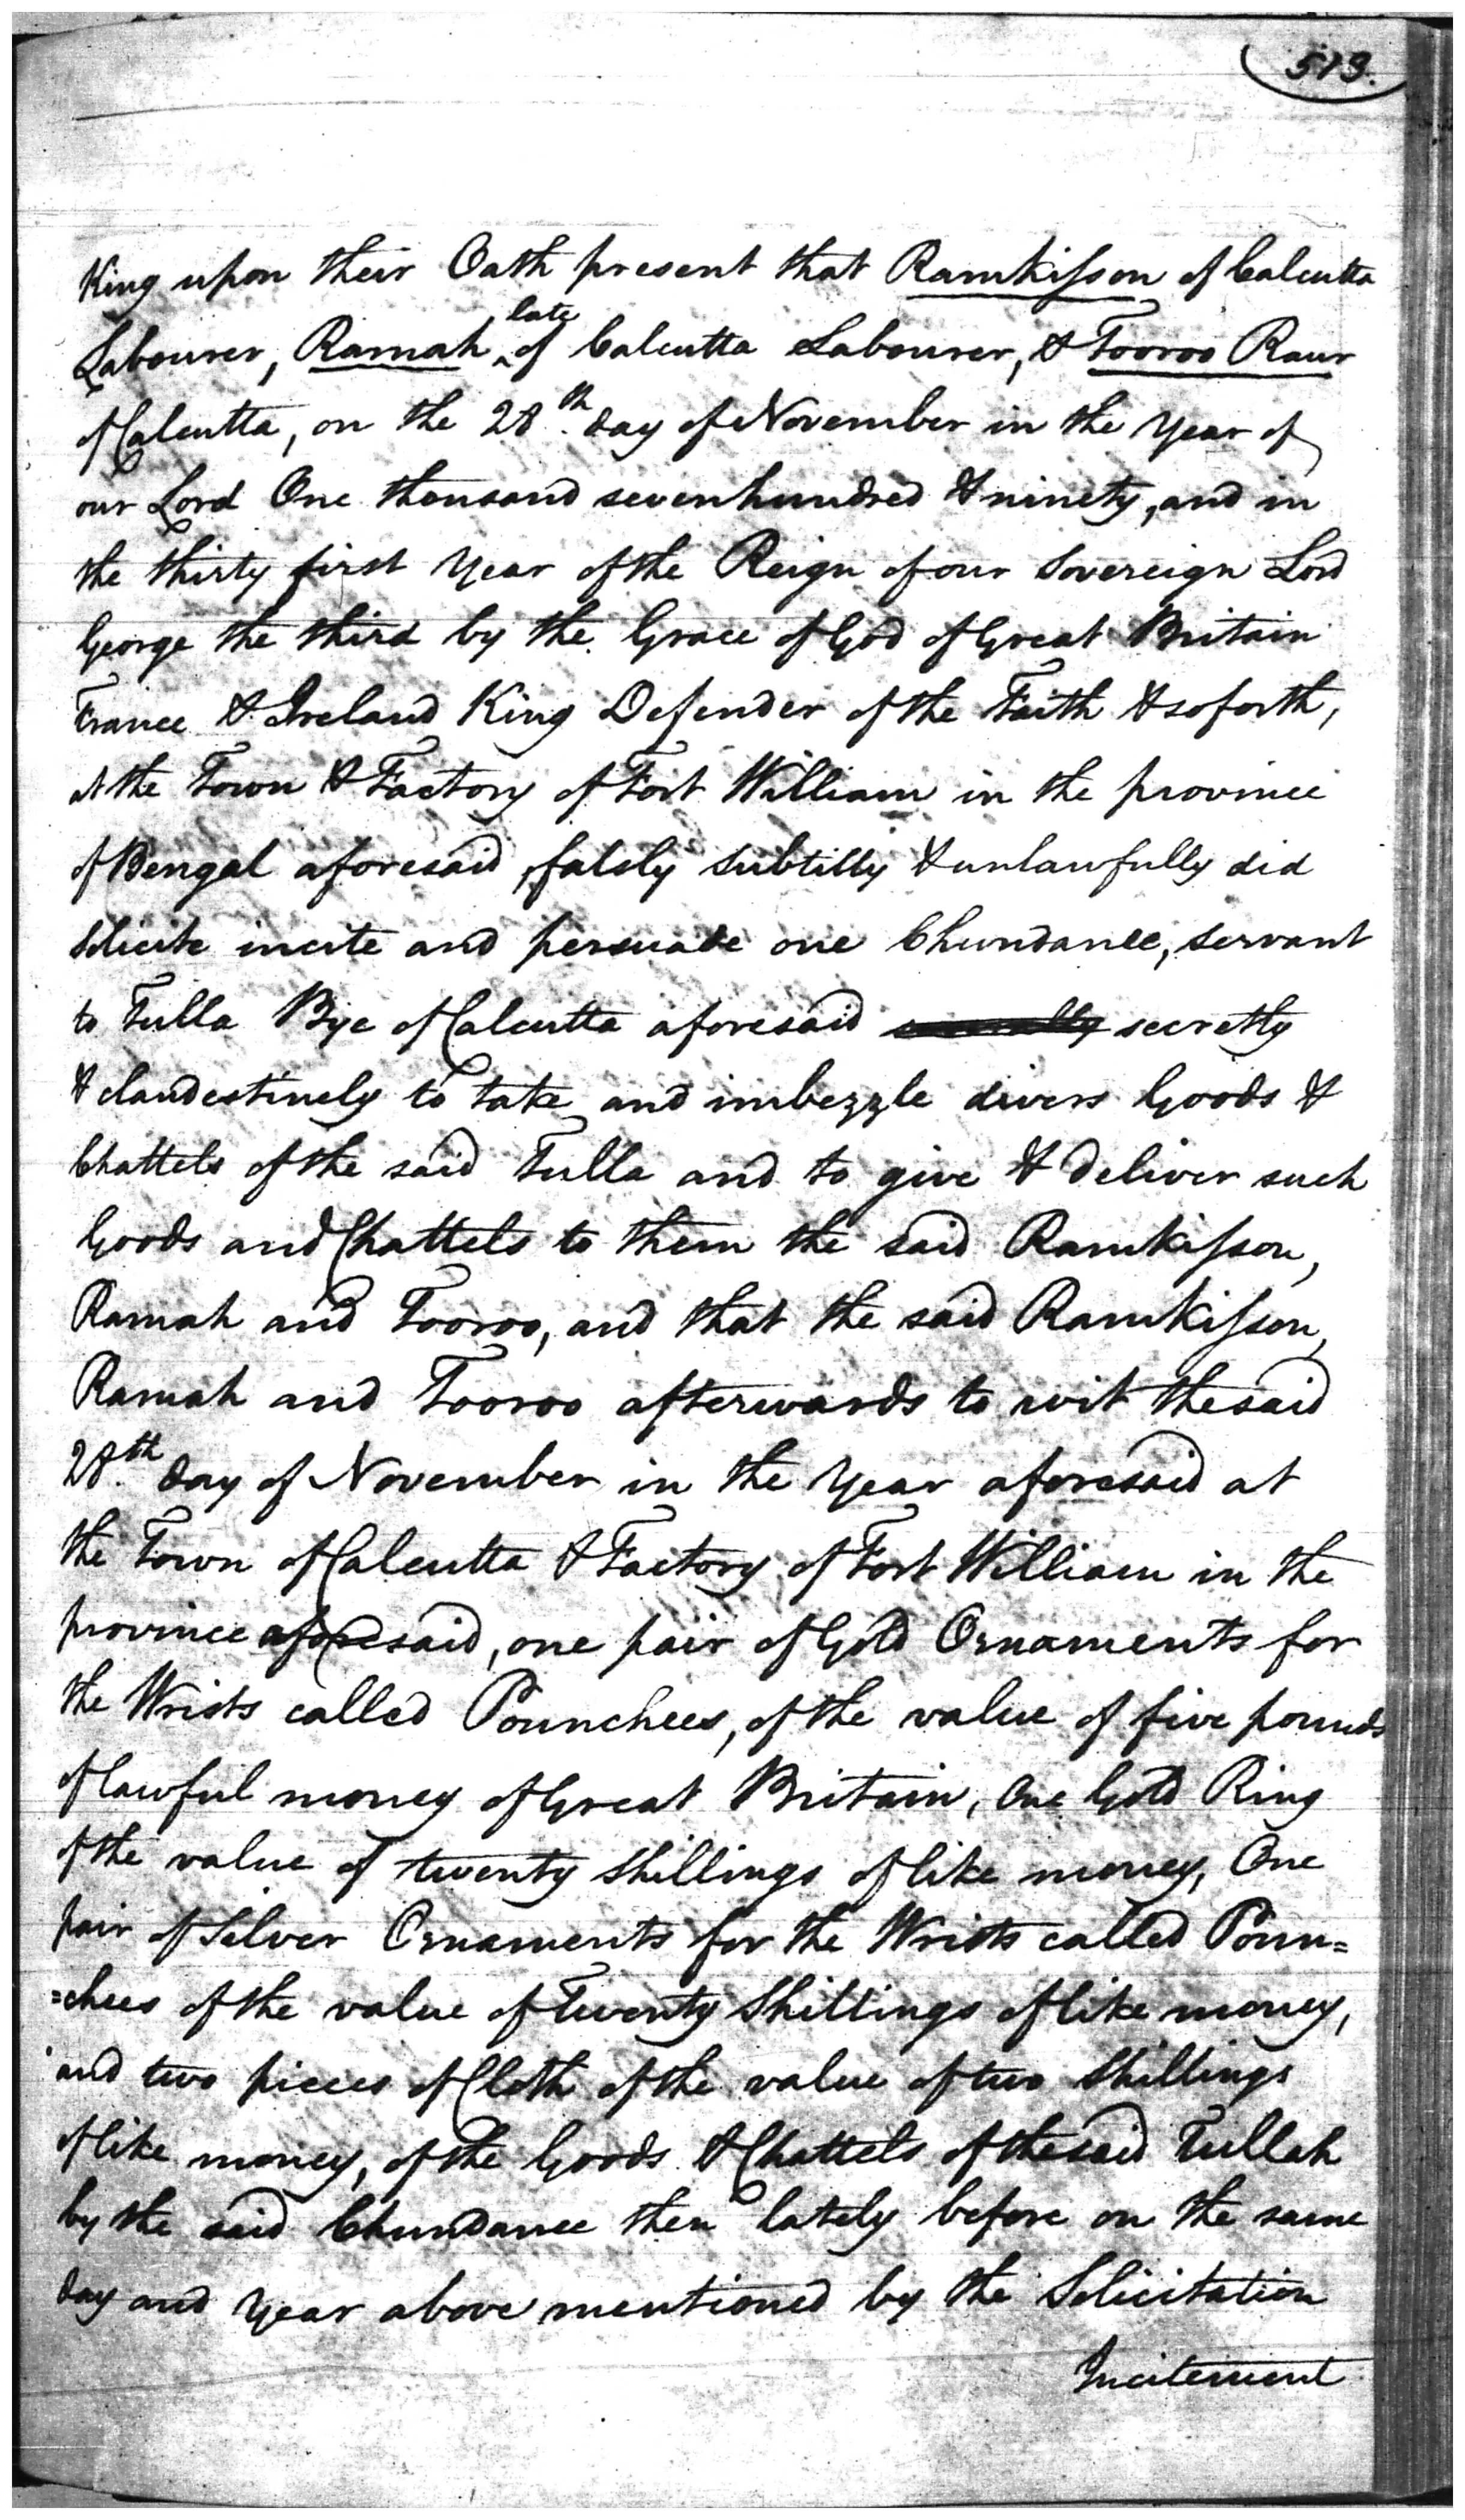 513.
King upon their Oath present that Ramkisson of Calcutta
Labourer, Ramah late of Calcutta Labourer, & Tooroo Raur
of Calcutta, on the 28th. day of November in the Year of
our Lord One thousand sevenhundred & ninety, and in
the thirty first Year of the Reign of our Sovereign Lord
George the third by the Grace of God of Great Britain
France & Ireland King Defender of the Faith & soforth,
at the Town & Factory of Fort William in the province
of Bengal aforesaid, falsly subtilly & unlawfully did
solicite incite and persuade one Chundanee, servant
to Tulla Bye of Calcutta aforesaid secretly
& clandestinely to take and imbezzle divers Goods &
Chattels of the said Tulla and to give & deliver such
Goods and Chattels to them the said Ramkisson,
Ramah and Tooroo, and that the said Ramkisson,
Ramah and Tooroo afterwards to wit the said
28.th day of November in the Year aforesaid at
the Town of Calcutta & Factory of Fort William in the
province aforesaid, one pair of Gold Ornaments for
the Wrists called Pounchees, of the value of five pounds
of lawful money of Great Britain, One Gold Ring
of the value of twenty shillings of like money, One
pair of Silver Ornaments for the Wrists called Poun=
=chees of the value of Twenty Shillings of like money,
and two pieces of Cloth of the value of two Shillings
of like money, of the Goods & Chattels of the said Tullah
by the said Chundanee then lately before on the same
day and Year above mentioned by the Solicitation
Incitement